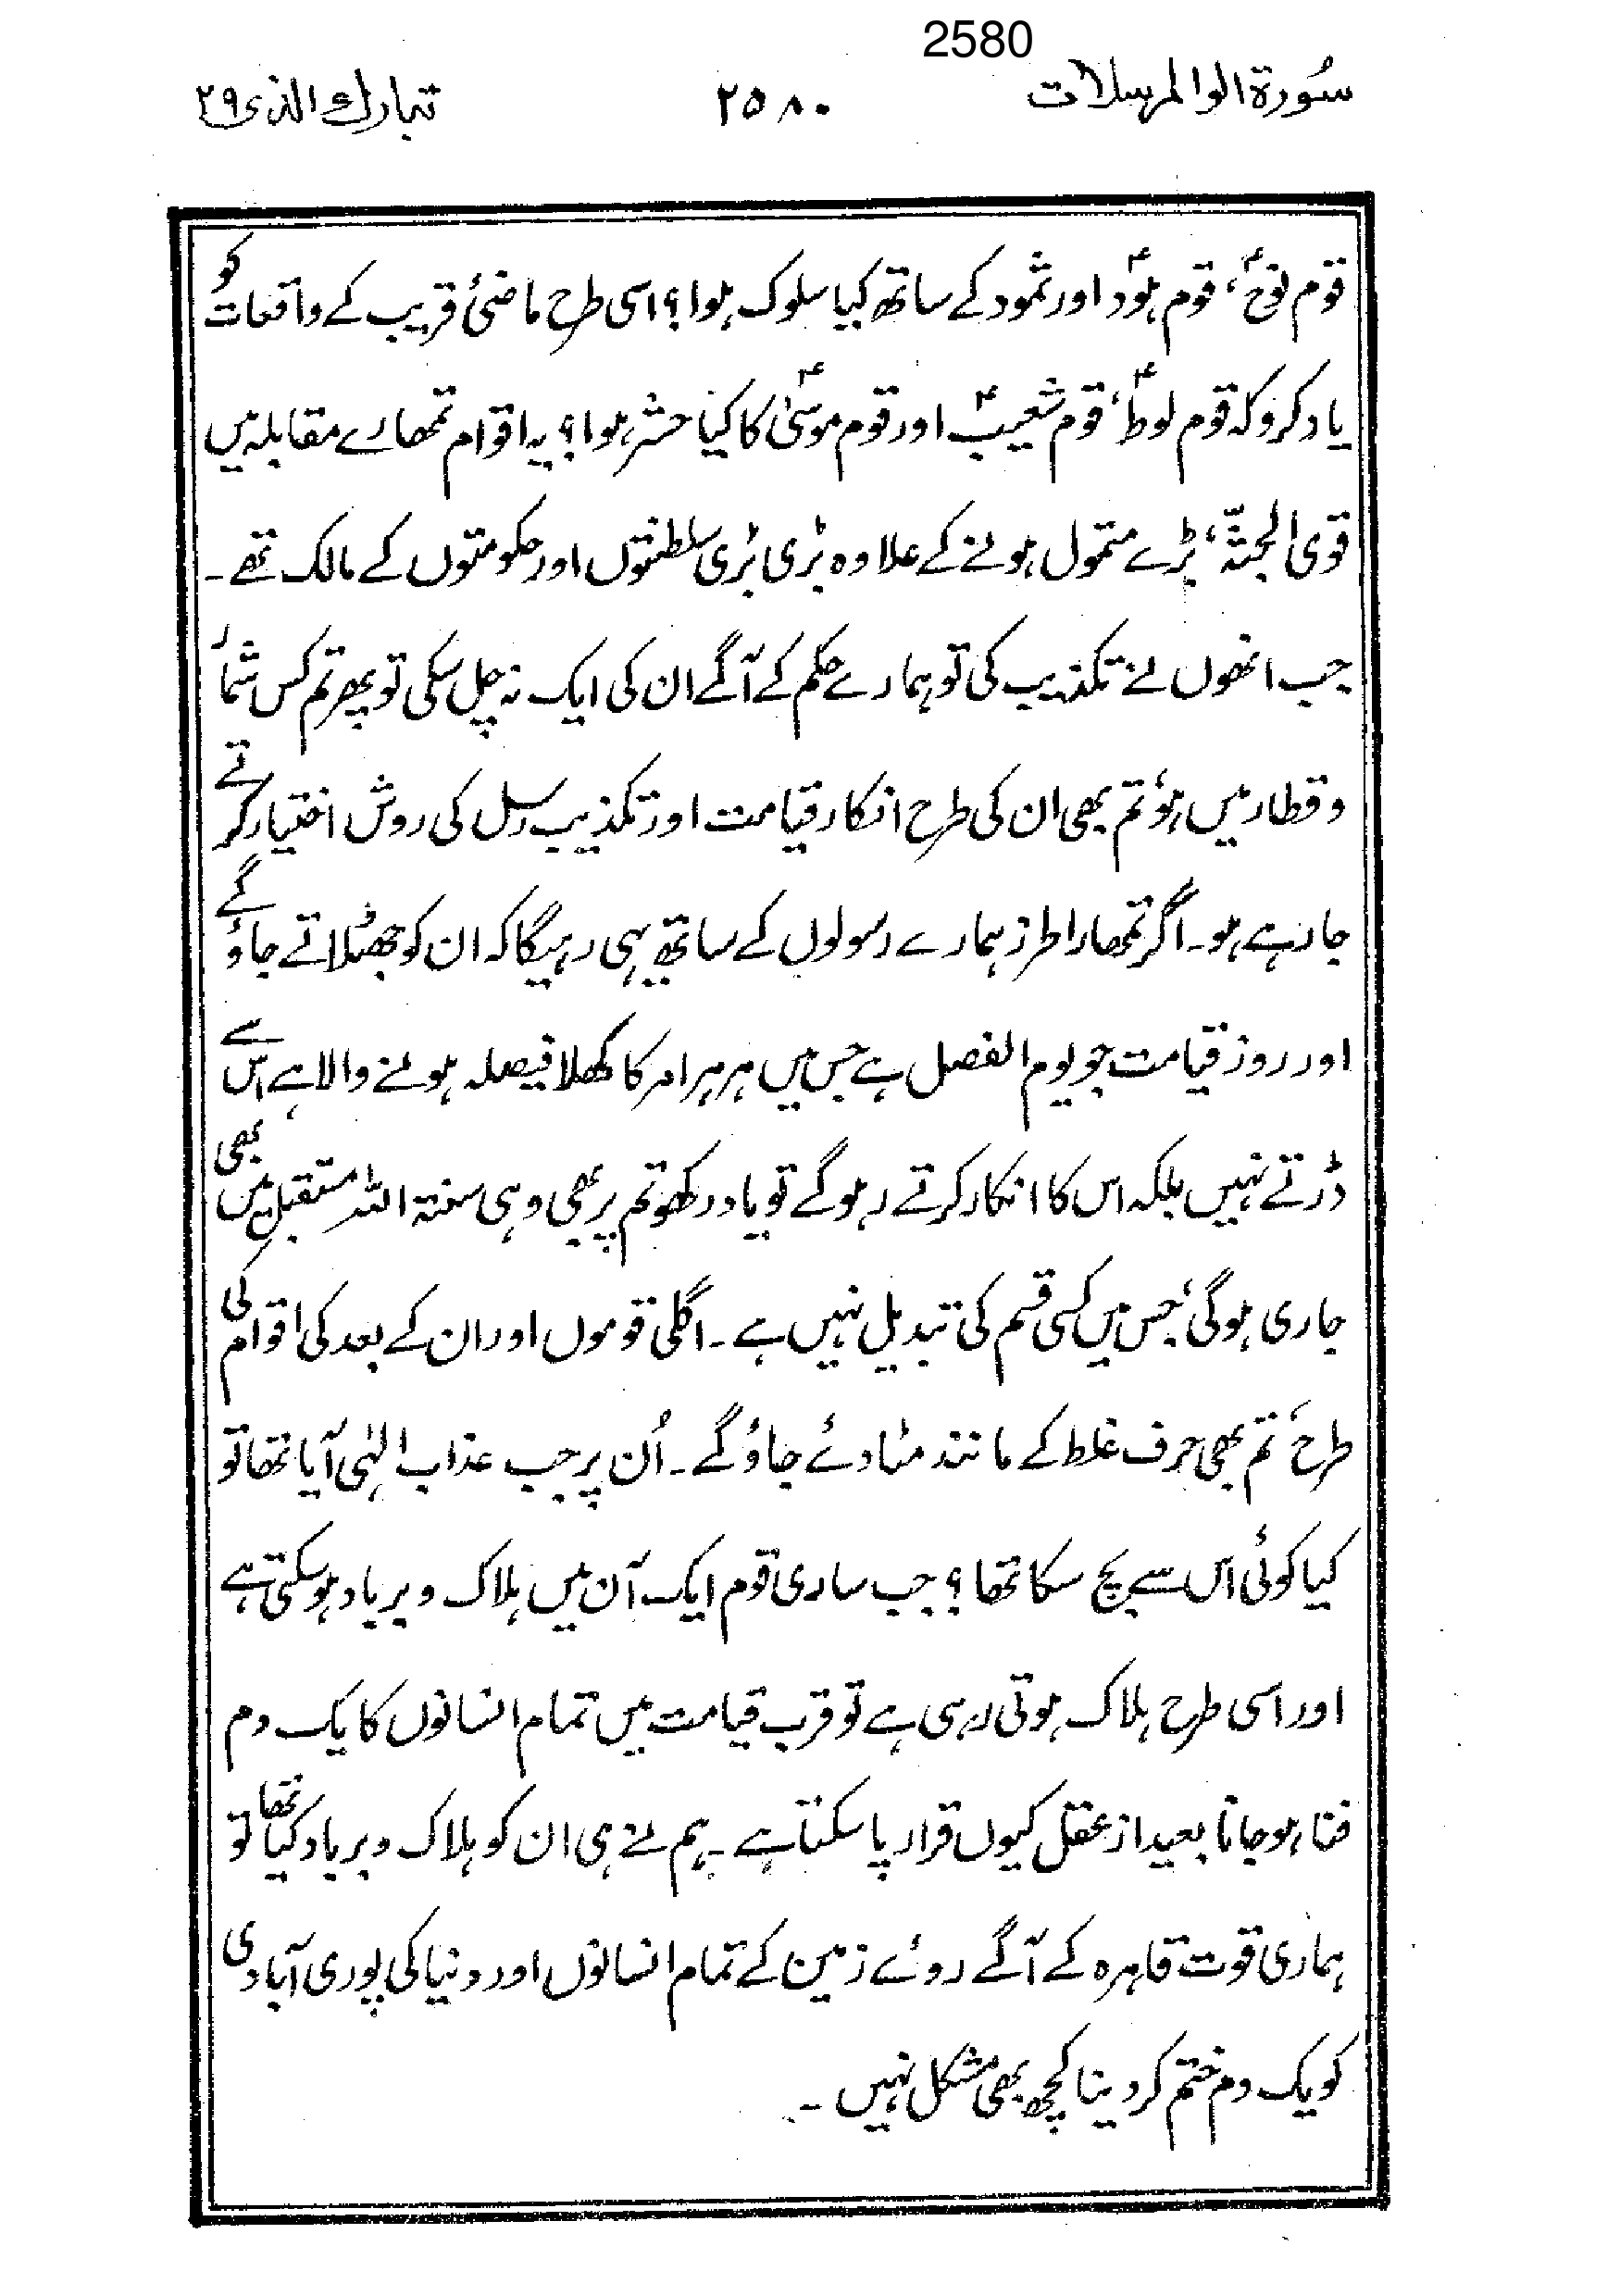 2580
سُورۃ الوالمرسلات ۲۵۸۰ تبارك الذی ۲۹
قوم نوحؑ، قوم ہودؑ اور ثمود کے ساتھ کیا سلوک ہوا؟ اسی طرح ماضیٔ قریب کے واقعات کو
یاد کرو کہ قوم لوطؑ، قوم شعیبؑ اور قوم موسیٰؑ کا کیا حشر ہوا؟ یہ اقوام تمھارے مقابلہ میں
قوی الجثّہ، بڑے متمول ہونے کے علاوہ بڑی بڑی سلطنتوں اور حکومتوں کے مالک تھے۔
جب انھوں نے تکذیب کی تو ہمارے حکم کے آگے ان کی ایک نہ چل سکی تو پھر تم کس شمار
وقطار میں ہو، تم بھی ان کی طرح انکار قیامت اور تکذیب رسل کی روش اختیار کرتے
جارہے ہو۔ اگر تمھارا طرز ہمارے رسولوں کے ساتھ یہی رہیگا کہ ان کو جھٹلاتے جاؤ گے
اور روز قیامت جو یوم الفصل ہے جس میں ہر ہر امر کا کھلا فیصلہ ہونے والا ہے، اس سے
ڈرتے نہیں بلکہ اس کا انکار کرتے رہو گے تو یاد رکھو تم پر بھی وہی سنۃ اللہ مستقبل میں بھی
جاری ہوگی، جس میں کسی قسم کی تبدیل نہیں ہے۔ اگلی قوموں اور ان کے بعد کی اقوام کی
طرح، تم بھی حرف غلط کے مانند مٹادئے جاؤ گے۔ اُن پر جب عذاب الٰہی آیا تھا تو
کیا کوئی اس سے بچ سکا تھا؟ جب ساری قوم ایک آن میں ہلاک و برباد ہوسکتی ہے
اور اسی طرح ہلاک ہوتی رہی ہے تو قرب قیامت میں تمام انسانوں کا یک دم
فنا ہوجانا بعید از عقل کیوں قرار پا سکتا ہے۔ ہم نے ہی ان کو ہلاک و برباد کیا تھا تو
ہماری قوت قاہرہ کے آگے روئے زمین کے تمام انسانوں اور دنیا کی پوری آبادی
کو یک دم ختم کر دینا کچھ بھی مشکل نہیں۔